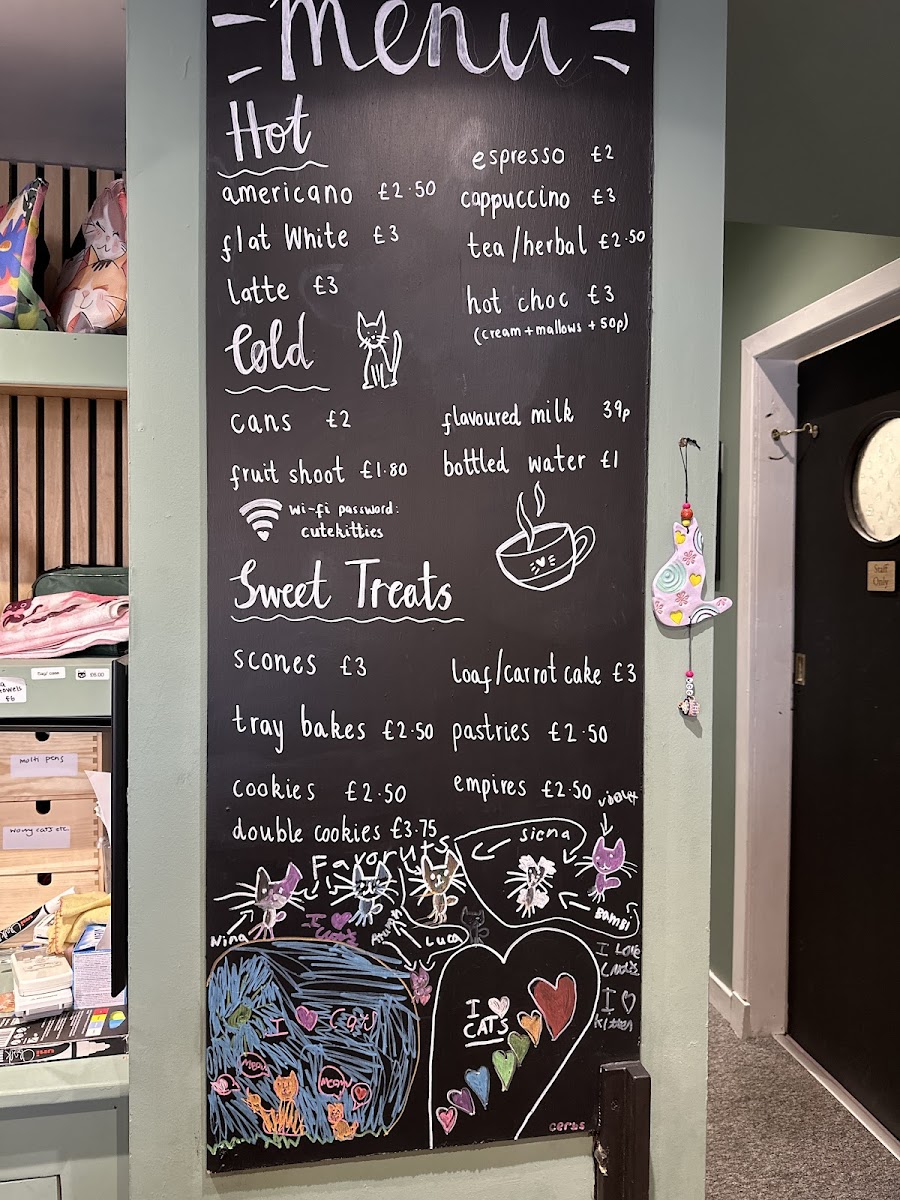 Menu
Hot
espresso £2
americano £2.50
cappuccino £3
flat White £3
tea/herbal £2.50
latte £3
hot choc £3
(cream+mallows +50p)
Cold
cans £2
flavoured milk 39p
fruit shoot £1.80
bottled water £1
wi-fi password:
cutekitties
Sweet Treats
scones £3
loaf/carrot cake £3
tray bakes £2.50
pastries £2.50
cookies £2.50
empires £2.50
double cookies £3.75
violet
siena
Favoruts
Bambi
Nina
I
Luca
I LOVE
I
kitten
I
CATS
I Cats
meow
meow
cerys
Staff
Only
£5.00
towels
£6
multi pens
worry cats etc.